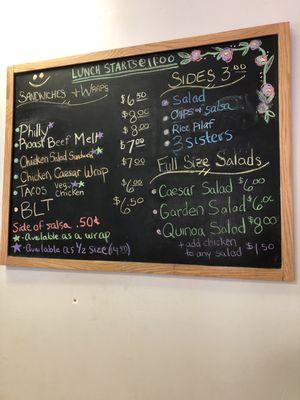 LUNCH STARTS @ 11:00
SANDWICHES + WRAPS
$6.50
$8.00
Philly $8.00
Roast Beef Melt $7.00
Chicken Salad Sandwich $7.00
Chicken Caesar Wrap
Tacos Veg Chicken $6.00
BLT $6.50
Side of salsa .50¢
- Available as a wrap
- Available as 1/2 size ($4.50)
SIDES 3.00
Salad
Chips + salsa
Rice Pilaf
3 Sisters
Full Size Salads
Caesar Salad $6.00
Garden Salad $6.00
Quinoa Salad $8.00
+ add chicken
to any salad $1.50